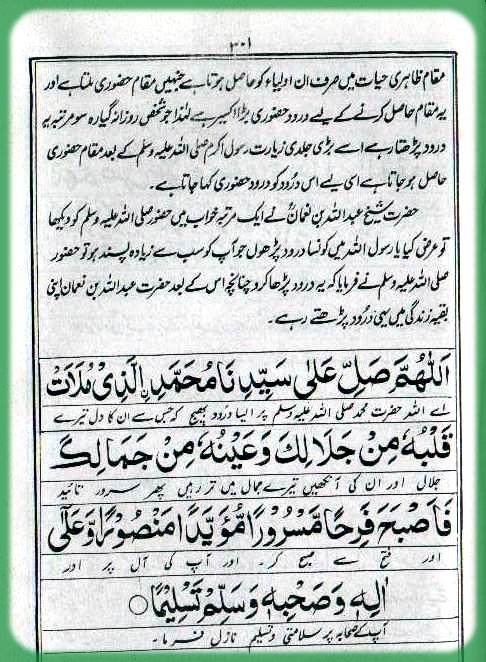 ۳۰۱
مقام ظاہری حیات میں صرف ان اولیاء کو حاصل ہوتا ہے جنہیں مقام حضوری ملتا ہے اور
یہ مقام حاصل کرنے کے لیے درود حضوری بڑا اکسیر ہے لہٰذا جو شخص روزانہ گیارہ سو مرتبہ یہ
درود پڑھتا رہے اسے بڑی جلدی زیارت رسول اکرم صلی اللہ علیہ وسلم کے بعد مقام حضوری
حاصل ہو جاتا ہے اسی لیے اس درُود کو درود حضوری کہا جاتا ہے۔
حضرت شیخ عبداللہ بن نعمانؒ نے ایک مرتبہ خواب میں حضور صلی اللہ علیہ وسلم کو دیکھا
تو عرض کیا یا رسول اللہ میں کونسا درود پڑھوں جو آپ کو سب سے زیادہ پسند ہو تو حضور
صلی اللہ علیہ وسلم نے فرمایا کہ یہ درود پڑھا کرو چنانچہ اس کے بعد حضرت عبداللہ بن نعمان اپنی
بقیہ زندگی میں یہی درُود پڑھتے رہے۔
اَللّٰهُمَّ صَلِّ عَلٰى سَيِّدِنَا مُحَمَّدِ ۨ الَّذِىْ مُلَاَتْ
اے اللہ حضرت محمد صلی اللہ علیہ وسلم پر ایسا درُود بھیج کہ جس سے ان کا دل تیرے
قَلْبُهٗ مِنْ جَلَالِكَ وَعَيْنُهٗ مِنْ جَمَالِكَ
جلال اور ان کی آنکھیں تیرے جمال میں تر رہیں پھر سرور تائید
فَاَصْبَحَ فَرِحًا مَّسْرُوْرًا مُّؤَيَّدًا مَّنْصُوْرًا وَّعَلٰٓى
اور فتح سے صبح کر۔ اور آپ کی آل پر اور
اٰلِهٖ وَصَحْبِهٖ وَسَلِّمْ تَسْلِيْمًا ○
آپ کے صحابہ پر سلامتی و تسلیم نازل فرما۔